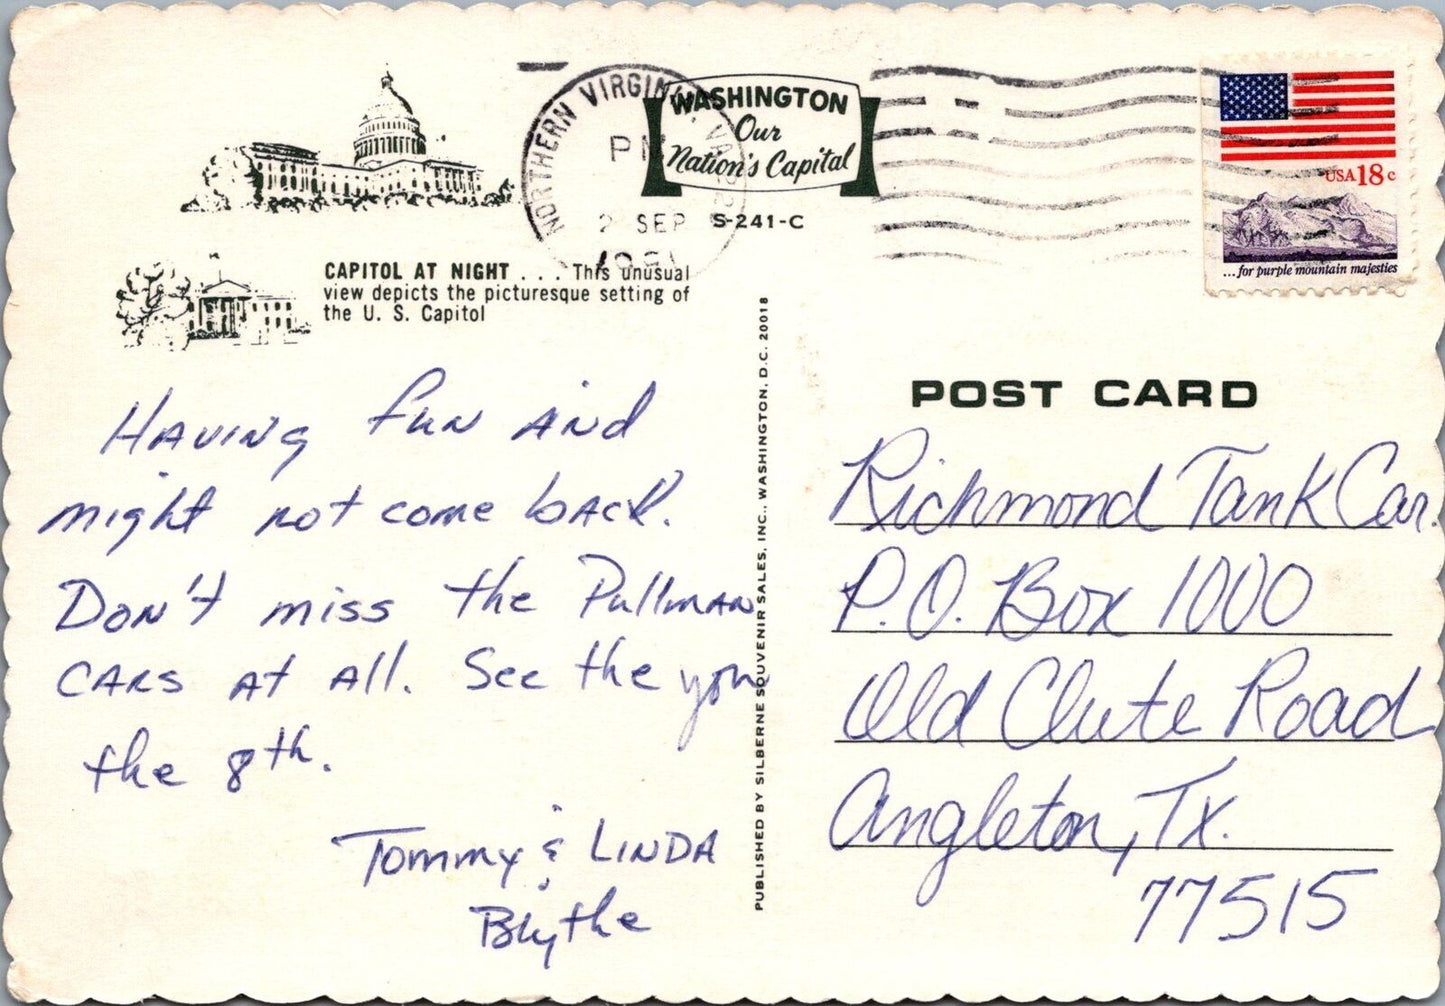 NORTHERN VIRGINIA, VA 220
PM
2 SEP
1981
WASHINGTON
Our
Nation's Capital
S-241-C
USA 18c
...for purple mountain majesties
CAPITOL AT NIGHT . . . This unusual
view depicts the picturesque setting of
the U. S. Capitol
Having fun and
might not come back.
Don't miss the Pullman
cars at all. See the you
the 8th.
Tommy & Linda
Blythe
PUBLISHED BY SILBERNE SOUVENIR SALES, INC., WASHINGTON, D.C. 20018
POST CARD
Richmond Tank Car.
P.O. Box 1000
Old Clute Road
Angleton, Tx.
77515